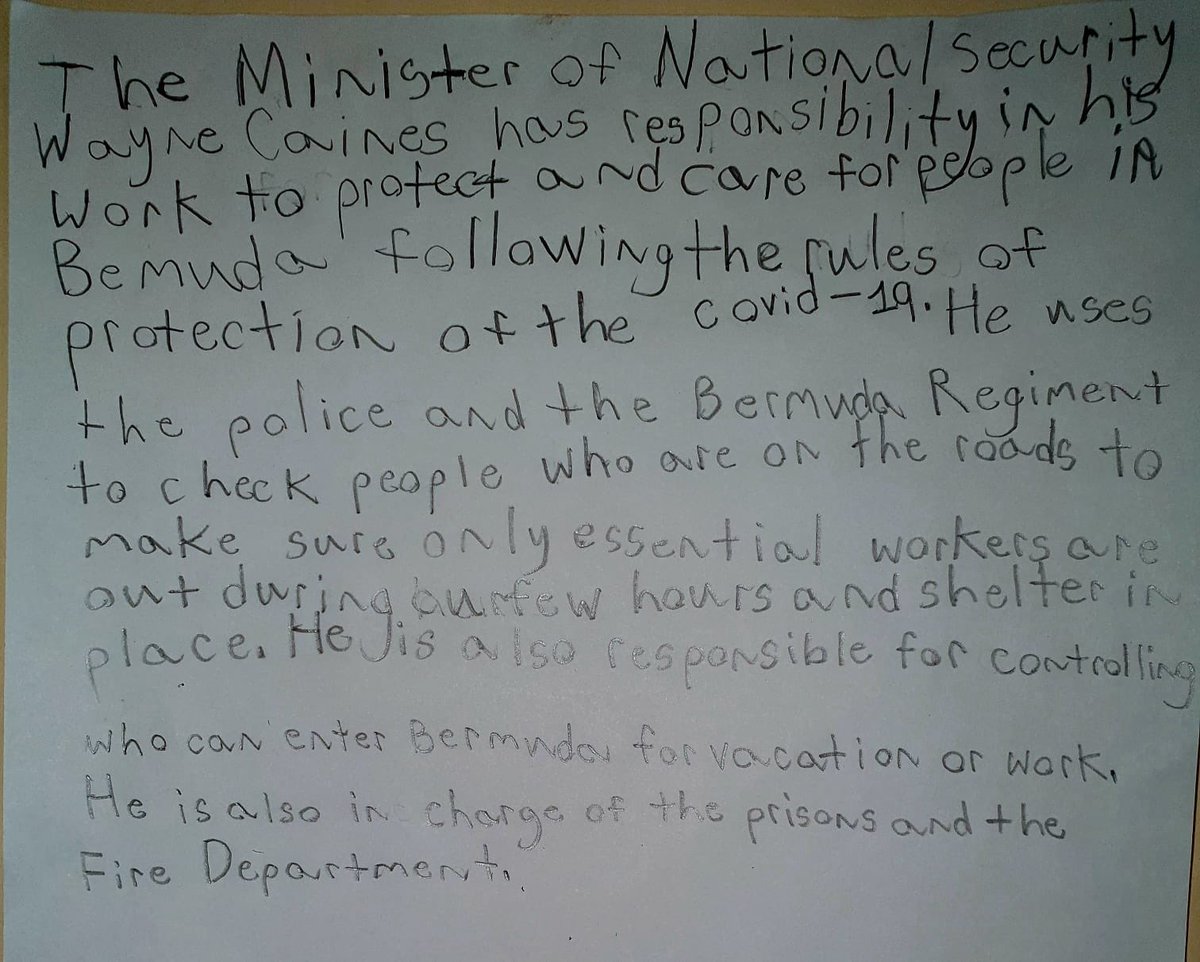 The Minister of National security
Wayne Caines has responsibility in his
Work to protect and care for people in
Bemuda following the rules of
protection of the covid-19. He uses
the police and the Bermuda Regiment
to check people who are on the roads to
make sure only essential workers are
out during curfew hours and shelter in
place. He is also responsible for controlling
who can enter Bermuda for vacation or work.
He is also in charge of the prisons and the
Fire Department.